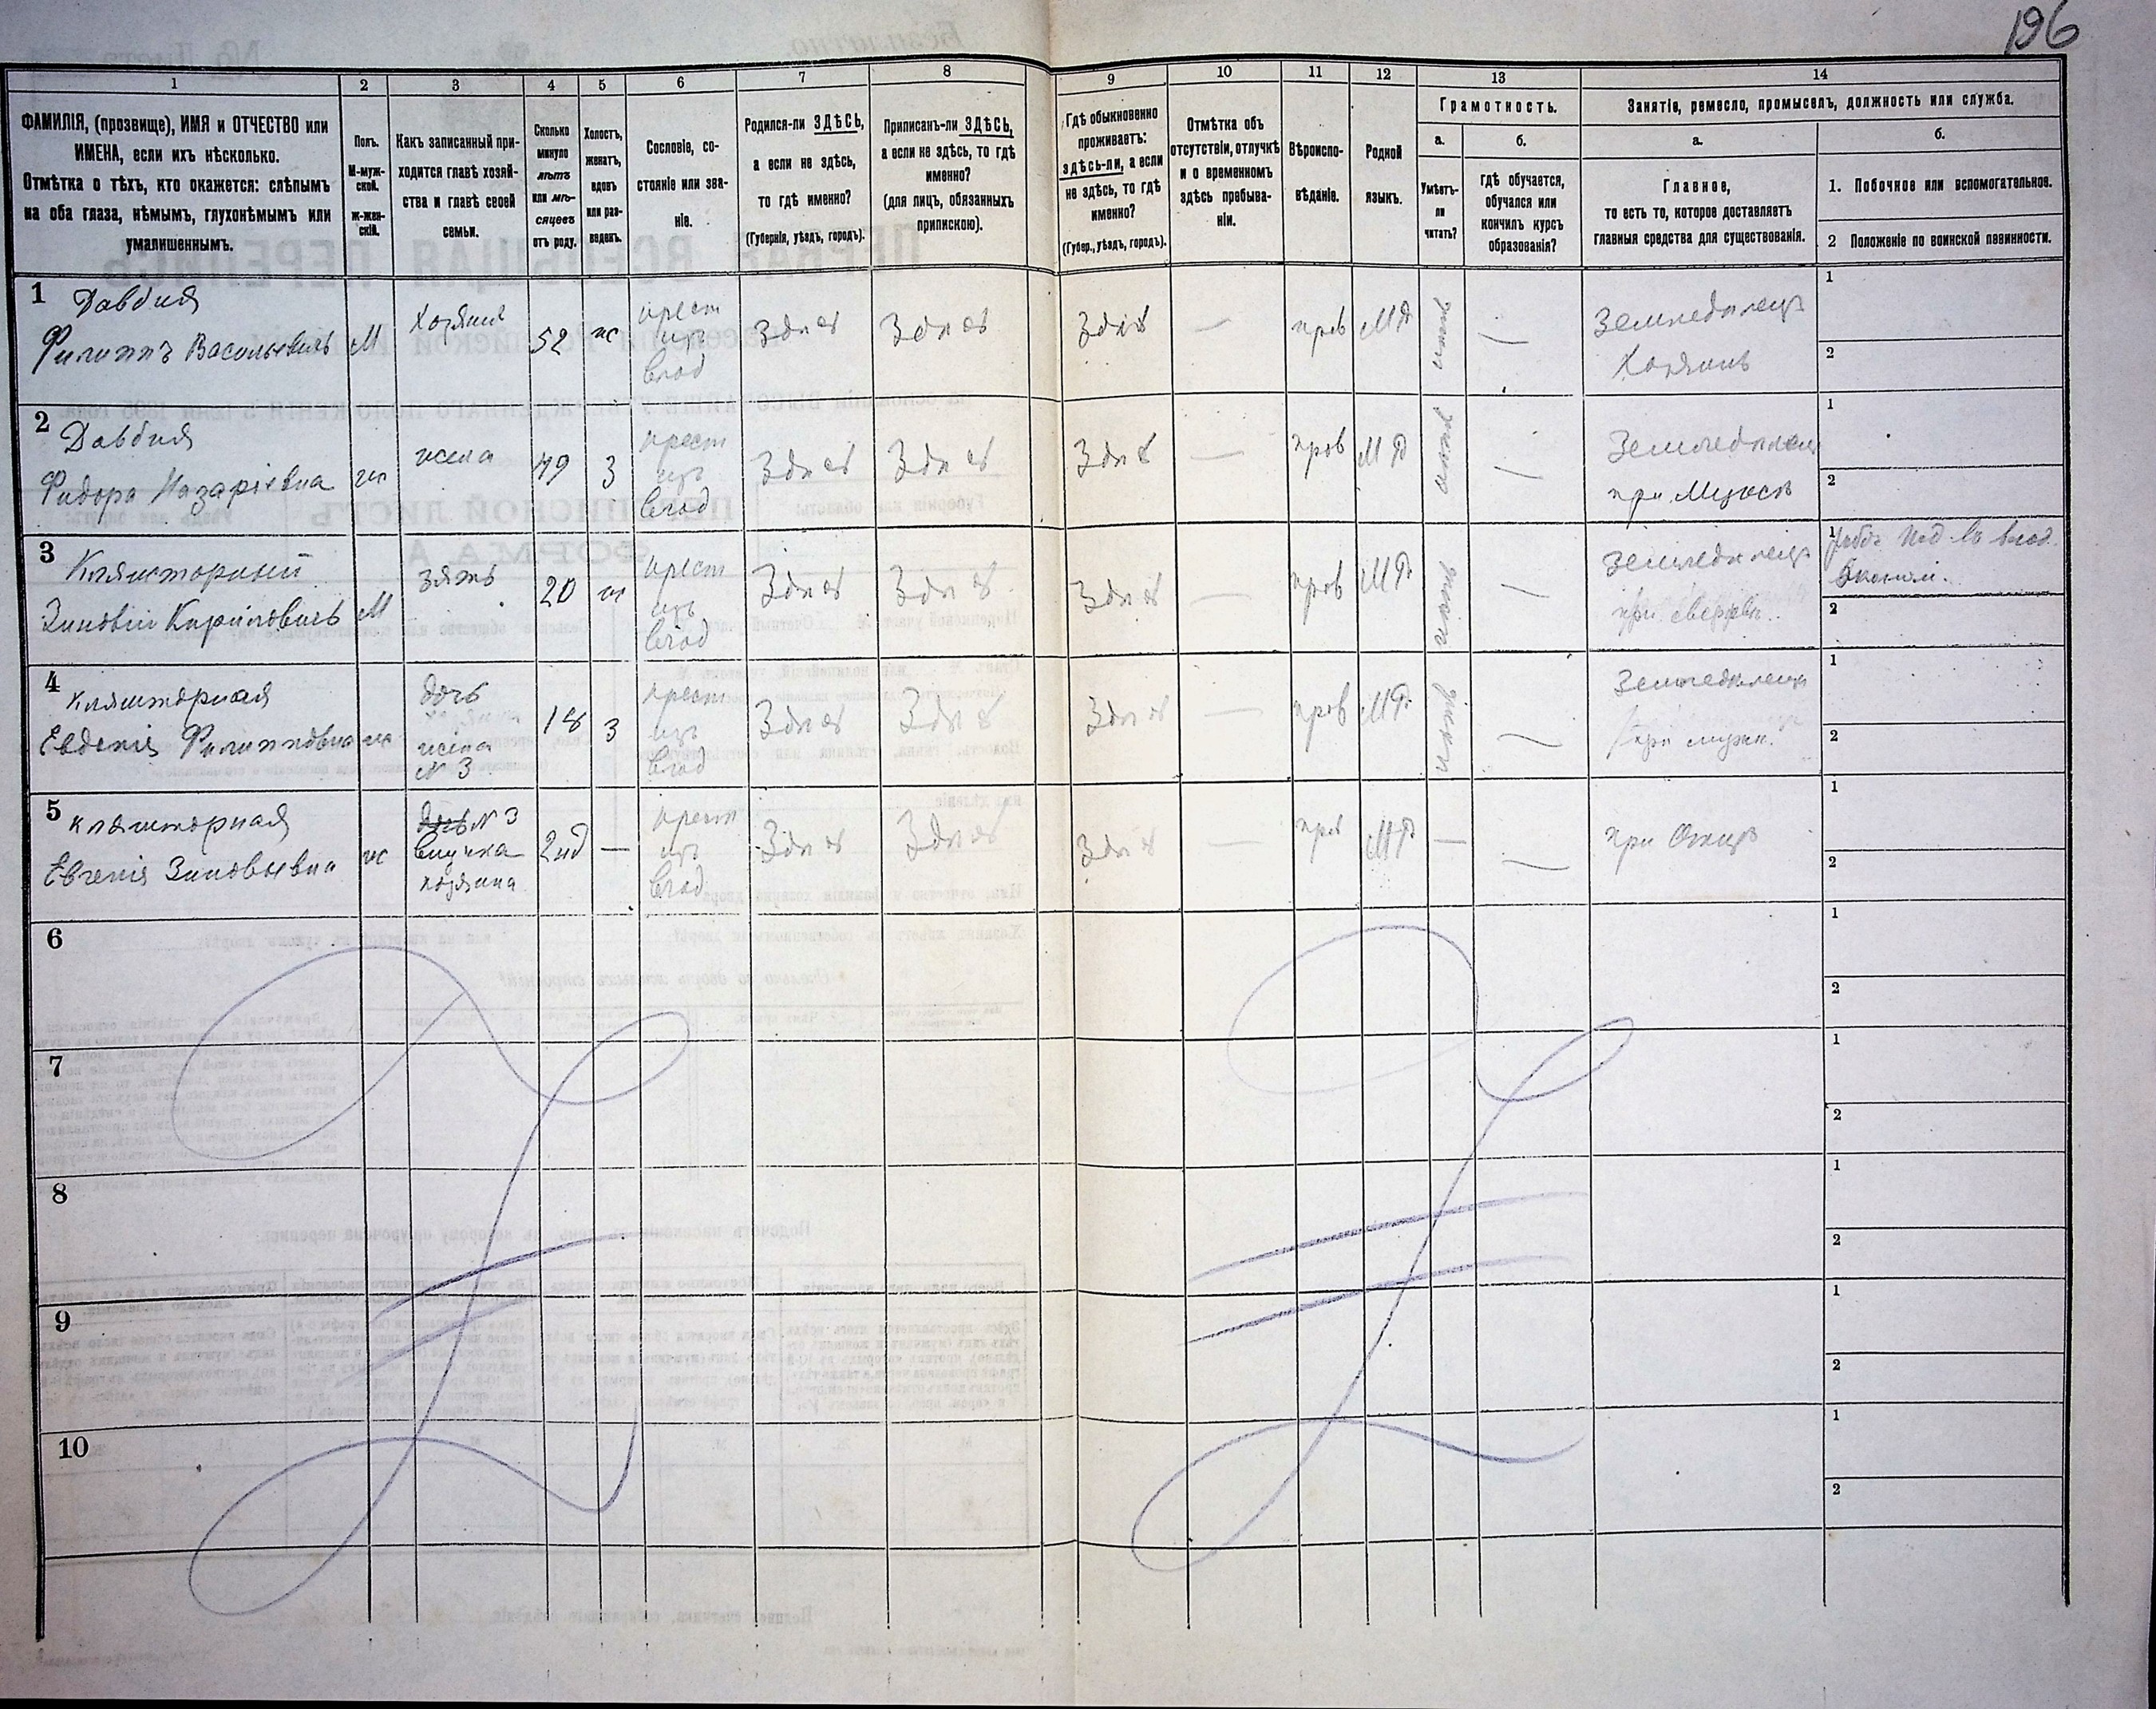 196
1
2
3
4
5
6
7
8
9
10
11
12
13
14
ФАМИЛІЯ, (прозвище), ИМЯ и ОТЧЕСТВО или
ИМЕНА, если ихъ нѣсколько.
Отмѣтка о тѣхъ, кто окажется: слѣпымъ
на оба глаза, нѣмымъ, глухонѣмымъ или
умалишеннымъ.
Полъ.
М-муж-
ской.
Ж-жен-
скій.
Какъ записанный при-
ходится главѣ хозяй-
ства и главѣ своей
семьи.
Сколько
минуло
лѣтъ
или мѣ-
сяцевъ
отъ роду.
Холостъ,
женатъ,
вдовъ
или раз-
веденъ.
Сословіе, со-
стояніе или зва-
ніе.
Родился-ли ЗДѢСЬ,
а если не здѣсь,
то гдѣ именно?
(Губернія, уѣздъ, городъ).
Приписанъ-ли ЗДѢСЬ,
а если не здѣсь, то гдѣ
именно?
(для лицъ, обязанныхъ
припискою).
Гдѣ обыкновенно
проживаетъ:
здѣсь-ли, а если
не здѣсь, то гдѣ
именно?
(Губер., уѣздъ, городъ).
Отмѣтка объ
отсутствіи, отлучкѣ
и о временномъ
здѣсь пребыва-
ніи.
Вѣроиспо-
вѣданіе.
Родной
языкъ.
Грамотность.
а.
Умѣетъ-
ли
читать?
б.
гдѣ обучается,
обучался или
кончилъ курсъ
образованія?
Занятіе, ремесло, промыселъ, должность или служба.
а.
Главное,
то есть то, которое доставляетъ
главныя средства для существованія.
б.
1. Побочное или вспомогательное.
2 Положеніе по воинской повинности.
1 Давбия
Филиппъ Васильевичъ
М
Хозяинъ
52
ж
крест
изъ
влад
Здѣсь
Здѣсь
Здѣсь
—
прав
МР
нѣтъ
—
Земледѣлецъ
Хозяинъ
1
2
2 Давбия
Фидора Назаріевна
ж
жена
49
З
крест
изъ
влад
Здѣсь
Здѣсь
Здѣсь
—
прав
МР
нѣтъ
—
Земледѣлецъ
при Мужѣ
1
2
3 Кляшторный
Зиновій Кириловичъ
М
зять
20
ж
крест
изъ
влад
Здѣсь
Здѣсь
Здѣсь
—
прав
МР
нѣтъ
—
Земледѣлецъ
при свекрѣ.
1 въ влад.
эконом.
2
4 Кляшторная
Евдокія Филипповна
ж
дочь
жена
№ 3
18
З
крест
изъ
влад
Здѣсь
Здѣсь
Здѣсь
—
прав
МР
нѣтъ
—
Земледѣлецъ
при мужѣ.
1
2
5 Кляшторная
Евгенія Зиновьевна
ж
дочь № 3
внучка
хозяина
2 нд
—
крест
изъ
влад
Здѣсь
Здѣсь
Здѣсь
—
прав
МР
—
—
при Отцѣ
1
2
6
1
2
7
1
2
8
1
2
9
1
2
10
1
2